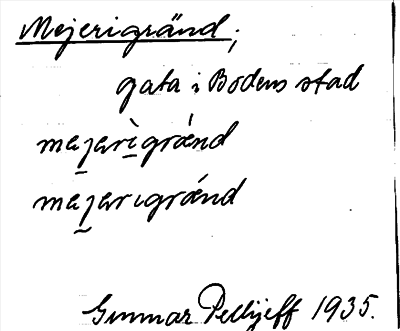 Mejerigränd;
gata i Bodens stad
mejerìgrǽnd
mejerıgrǽnd
Gunnar Pellijeff 1935.